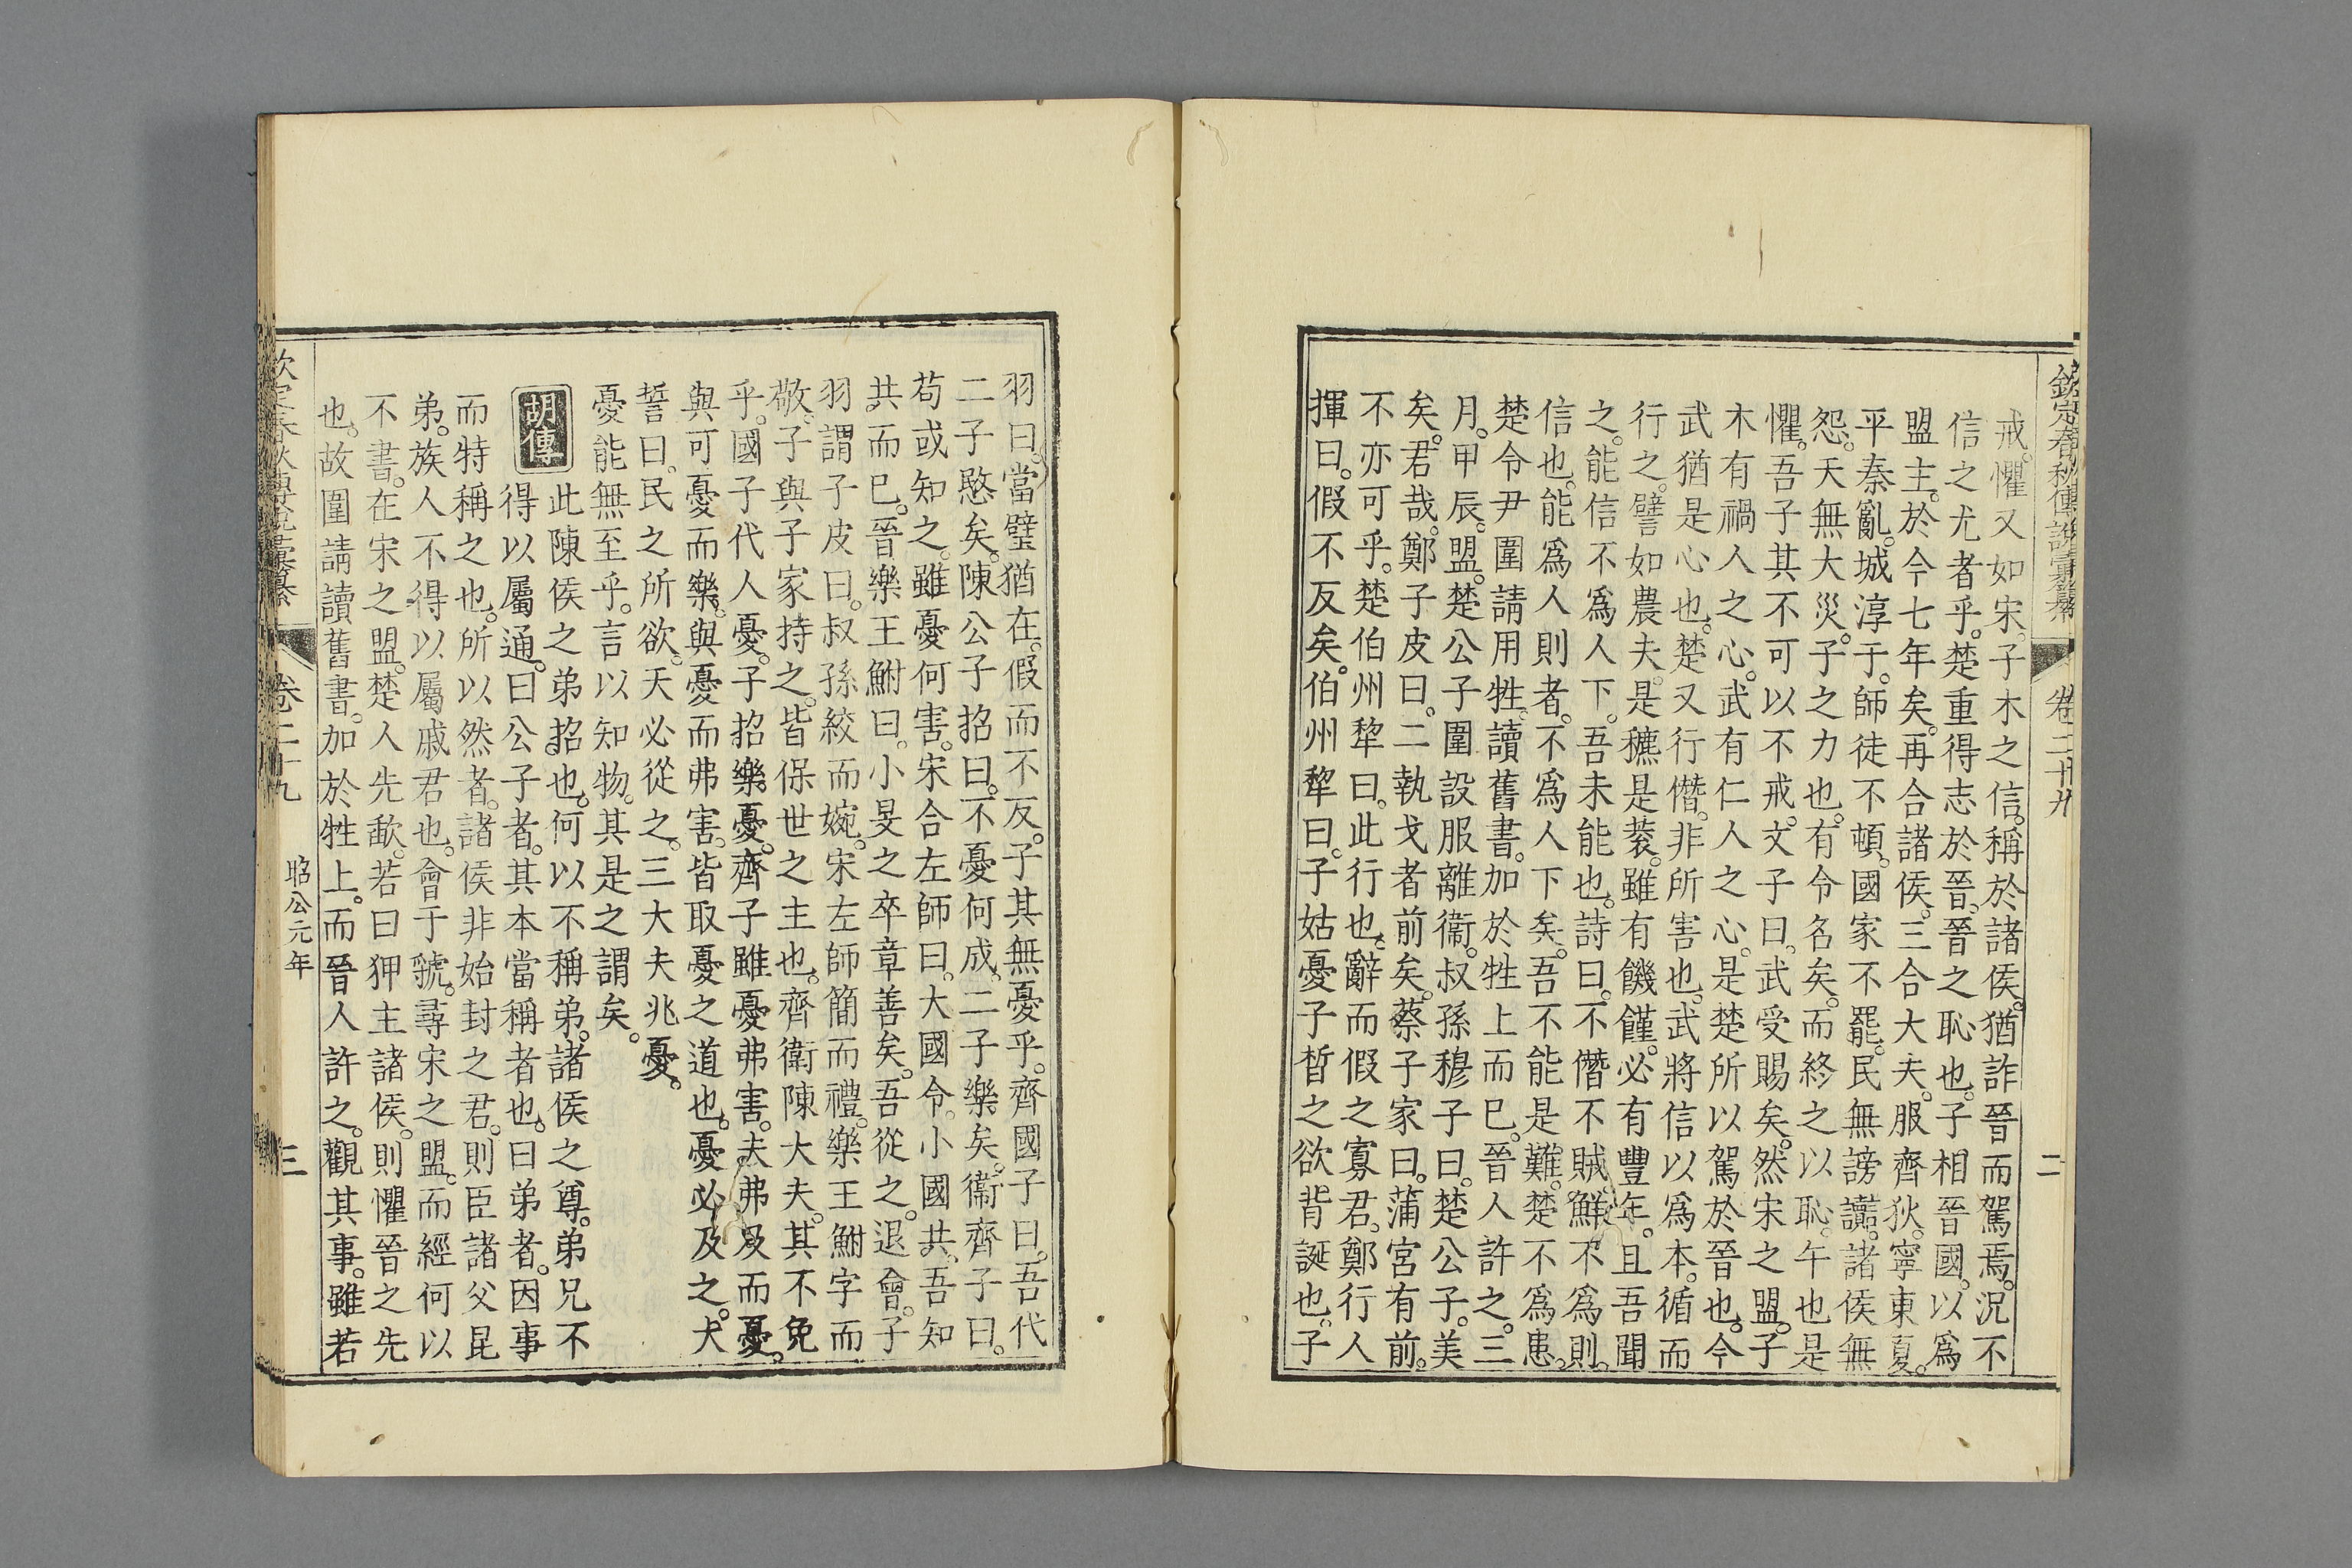 欽定春秋傳說彙纂 卷二十九 二
戒。懼又如宋。子木之信。稱於諸侯。猶詐晉而駕焉。況不
信之尤者乎。楚重得志於晉。晉之恥也。子相晉國。以爲
盟主。於今七年矣。再合諸侯。三合大夫。服齊狄。寧東夏。
平秦亂。城淳于。師徒不頓。國家不罷。民無謗讟。諸侯無
怨。天無大災。子之力也。有令名矣。而終之以恥。午也是
懼。吾子其不可以不戒。文子曰。武受賜矣。然宋之盟。子
木有禍人之心。武有仁人之心。是楚所以駕於晉也。今
武猶是心也。楚又行僭。非所害也。武將信以爲本。循而
行之。譬如農夫。是穮是蓘。雖有饑饉。必有豐年。且吾聞
之。能信不爲人下。吾未能也。詩曰。不僭不賊。鮮不爲則。
信也。能爲人則者。不爲人下矣。吾不能是難。楚不爲患。
楚令尹圍請用牲。讀舊書。加於牲上而巳。晉人許之。三
月。甲辰。盟。楚公子圍設服離衞。叔孫穆子曰。楚公子。美
矣。君哉。鄭子皮曰。二執戈者前矣。蔡子家曰。蒲宮有前。
不亦可乎。楚伯州犂曰。此行也。辭而假之寡君。鄭行人
揮曰。假不反矣。伯州犂曰。子姑憂子晳之欲背誕也。子
羽曰。當璧猶在。假而不反。子其無憂乎。齊國子曰。吾代
二子愍矣。陳公子招曰。不憂何成。二子樂矣。衞齊子曰。
苟或知之。雖憂何害。宋合左師曰。大國令。小國共。吾知
共而巳。晉樂王鮒曰。小旻之卒章善矣。吾從之。退會。子
羽謂子皮曰。叔孫絞而婉。宋左師簡而禮。樂王鮒字而
敬。子與子家持之。皆保世之主也。齊衛陳大夫。其不免
乎。國子代人憂。子招樂憂。齊子雖憂弗害。夫弗及而憂。
與可憂而樂。與憂而弗害。皆取憂之道也。憂必及之。大
誓曰。民之所欲。天必從之。三大夫兆憂。
憂能無至乎。言以知物。其是之謂矣。
胡傳
此陳侯之弟招也。何以不稱弟。諸侯之尊。弟兄不
得以屬通。曰公子者。其本當稱者也。曰弟者。因事
而特稱之也。所以然者。諸侯非始封之君。則臣諸父昆
弟。族人不得以屬戚君也。會于虢。尋宋之盟。而經何以
不書。在宋之盟。楚人先歃。若曰狎主諸侯。則懼晉之先
也。故圍請讀舊書。加於牲上。而晉人許之。觀其事。雖若
欽定春秋傳說彙纂 卷二十九 昭公元年 三